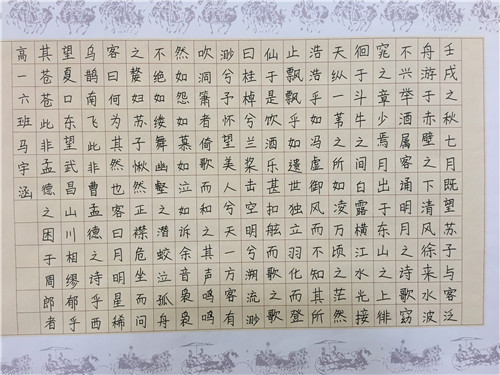 壬戌之秋七月既望苏子与客泛
舟游于赤壁之下清风徐来水波
不兴举酒属客诵明月之诗歌窈
窕之章少焉月出于东山之上徘
徊于斗牛之间白露横江水光接
天纵一苇之所如凌万顷之茫然
浩浩乎如冯虚御风而不知其所
止飘飘乎如遗世独立羽化而登
仙于是饮酒乐甚扣舷而歌之歌
曰桂棹兮兰桨击空明兮溯流渺
渺兮予怀望美人兮天一方客有
吹洞箫者倚歌而和之其声呜呜
然如怨如慕如泣如诉余音袅袅
不绝如缕舞幽壑之潜蛟泣孤舟
之嫠妇苏子愀然正襟危坐而问
客曰何为其然也客曰月明星稀
乌鹊南飞此非曹孟德之诗乎西
望夏口东望武昌山川相缪郁乎
其苍苍此非孟德之困于周郎者
高一六班马宇涵